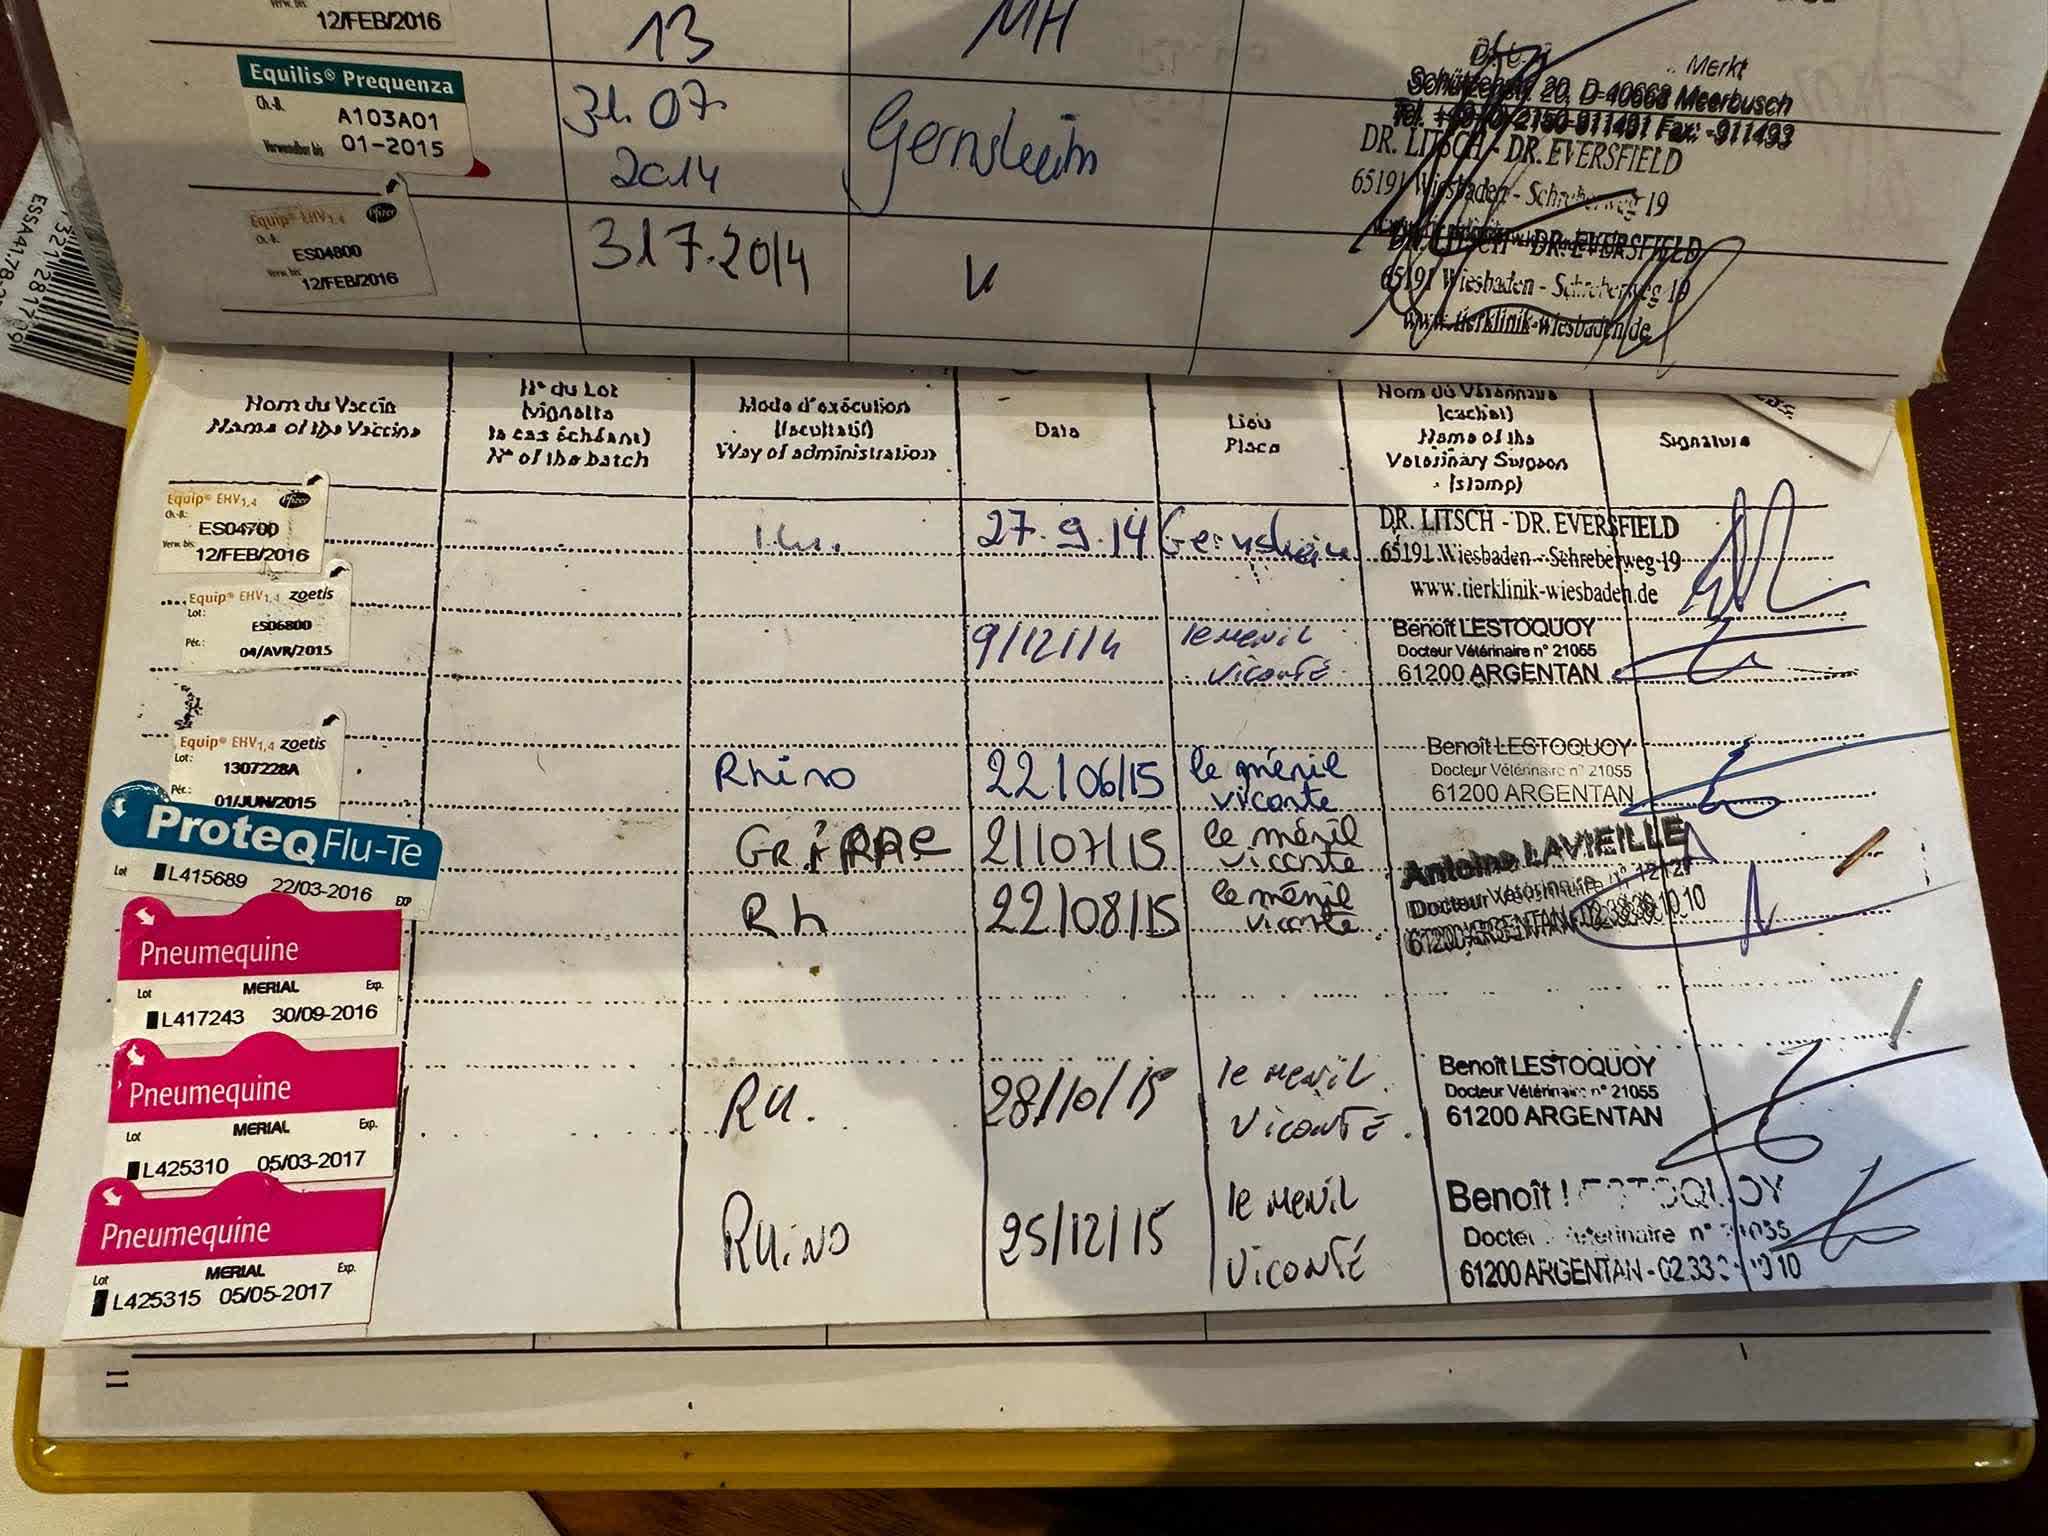 12/FEB/2016
13
MH
Merkt
Schützenstr. 20, D-40668 Meerbusch
Tel. Fax: -911493
Equilis® Prequenza
Ch.-B.
A103A01
Verwendbar bis 01-2015
31.07.
2014
Gernsheim
DR. LITSCH - DR. EVERSFIELD
65191 Wiesbaden - Schreberweg 19
Equip® EHV1,4 Pfizer
Ch.-B.
ES04800
Verw. bis: 12/FEB/2016
31.7.2014
DR. LITSCH - DR. EVERSFIELD
65191 Wiesbaden - Schreberweg 19
www.tierklinik-wiesbaden.de
Nom du Vaccin
Name of the Vaccine
N° du Lot
(vignette
le cas échéant)
N° of the batch
Mode d'exécution
(facultatif)
Way of administration
Date
Lieu
Place
Nom du Vétérinaire
(cachet)
Name of the
Veterinary Surgeon
(stamp)
Signature
Equip® EHV1,4 Pfizer
Ch.-B.:
ES04700
Verw. bis:
12/FEB/2016
27.9.14
Gernsheim
DR. LITSCH - DR. EVERSFIELD
65191 Wiesbaden - Schreberweg 19
www.tierklinik-wiesbaden.de
Equip® EHV1,4 zoetis
Lot:
ES06800
Pér.:
04/AVR/2015
9/12/14
le menil
vicomté
Benoît LESTOQUOY
Docteur Vétérinaire n° 21055
61200 ARGENTAN
Equip® EHV1,4 zoetis
Lot:
1307228A
Pér.:
01/JUN/2015
Rhino
22/06/15
le ménil
vicomte
Benoît LESTOQUOY
Docteur Vétérinaire n° 21055
61200 ARGENTAN
ProteqFlu-Te
Lot L415689 22/03-2016 EXP
GRIPPE
21/07/15
le ménil
vicomte
Antoine LAVIEILLE
Docteur Vétérinaire n°
61200 ARGENTAN
Pneumequine
Lot MERIAL Exp.
L417243 30/09-2016
Rh
22/08/15
le ménil
vicomte
Pneumequine
Lot MERIAL Exp.
L425310 05/03-2017
RH.
28/10/15
le menil
vicomté.
Benoît LESTOQUOY
Docteur Vétérinaire n° 21055
61200 ARGENTAN
Pneumequine
Lot MERIAL Exp.
L425315 05/05-2017
RHINO
25/12/15
le menil
vicomté
Benoît LESTOQUOY
Docteur Vétérinaire n° 21055
61200 ARGENTAN
11